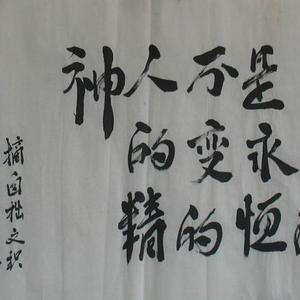 是永恒
不变的
人的精
神
摘自拙文